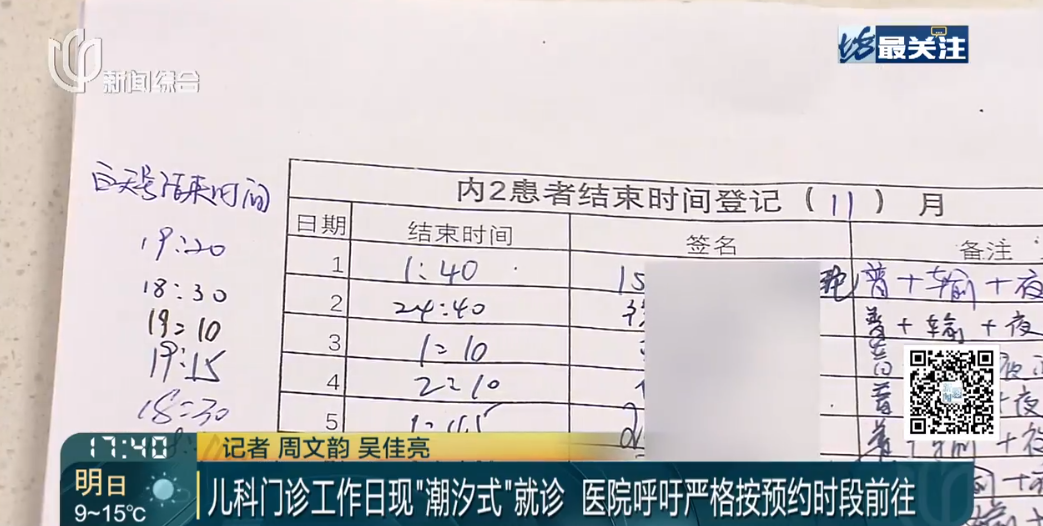 新闻综合
最关注
白天号结束时间
19:20
18:30
19:10
19:15
18:30
内2患者结束时间登记（11）月
日期 结束时间 签名 备注
1 1:40 普+输+夜
2 24:40 普+输+夜
3 1:10 普
4 2:10 普 +夜
5 +夜
17:40
记者 周文韵 吴佳亮
明日
9~15℃
儿科门诊工作日现"潮汐式"就诊 医院呼吁严格按预约时段前往